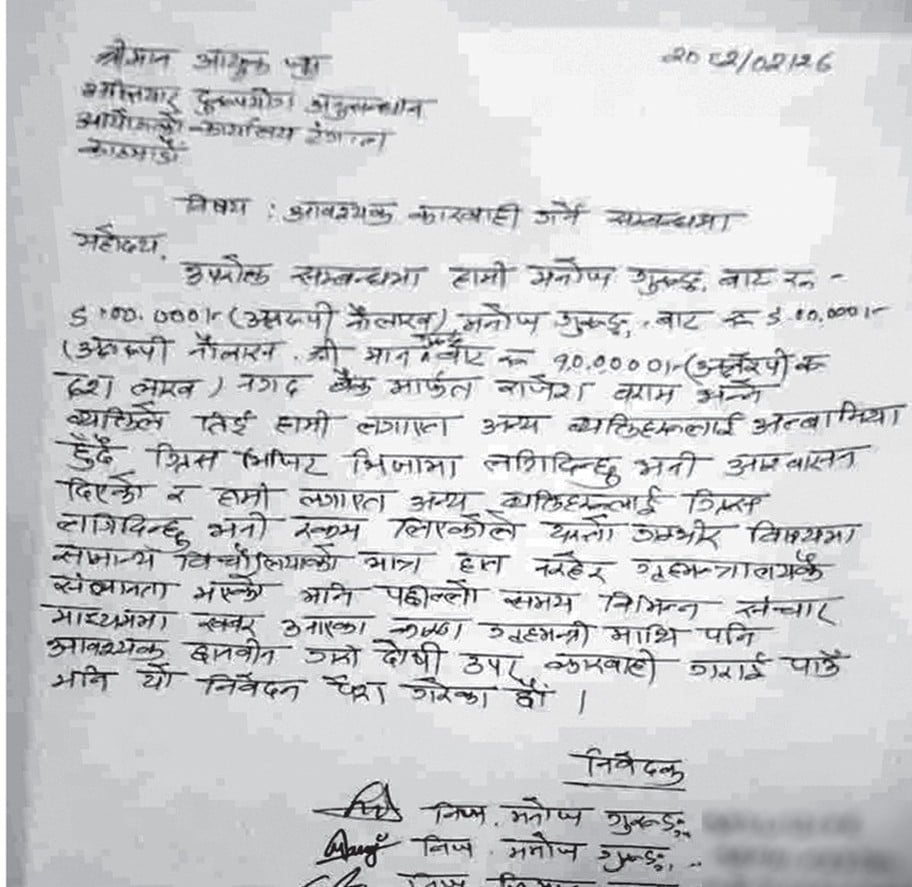 श्रीमान आयुक्त ज्यू
2082/02/26
अख्तियार दुरुपयोग अनुसन्धान
आयोगको कार्यालय टंगाल
काठमाडौं
विषय : आवश्यक कारवाही गर्ने सम्बन्धमा
महोदय,
उपरोक्त सम्बन्धमा हामी मनोज गुरुङ, बाट रु -
900.000।- (अक्षरुपी नौलाख) मनोज गुरुङ, बाट रु 900,000।-
(अक्षरुपी नौलाख श्री मान बाट रु 10,00000।- (अक्षरुपी रु
दश लाख) नगद बैंक मार्फत राजेश भन्ने
व्यक्तिले लिई हामी लगाएत अन्य व्यक्तिहरुलाई अल्बानिया
हुँदै ग्रिस भिजिट भिजामा लगिदिन्छु भनी आश्वासन
दिएको र हामी लगाएत अन्य व्यक्तिहरुलाई ग्रिस
लगिदिन्छु भनी रकम लिएकोले यस्तो गम्भीर विषयमा
सामान्य विचौलियाको मात्र हात नरहेर गृहमन्त्रालयकै
संलग्नता भएको भनि पछिल्लो समय विभिन्न संचार
माध्यममा खबर आएका गृहमन्त्री माथि पनि
आवश्यक छानवीन गरी दोषी उपर कारवाही गराई पाउँ
भनि यो निवेदन पेश गरेका छौं ।
निवेदक
निज. मनोज गुरुङ
निज मनोज गुरुङ
निज